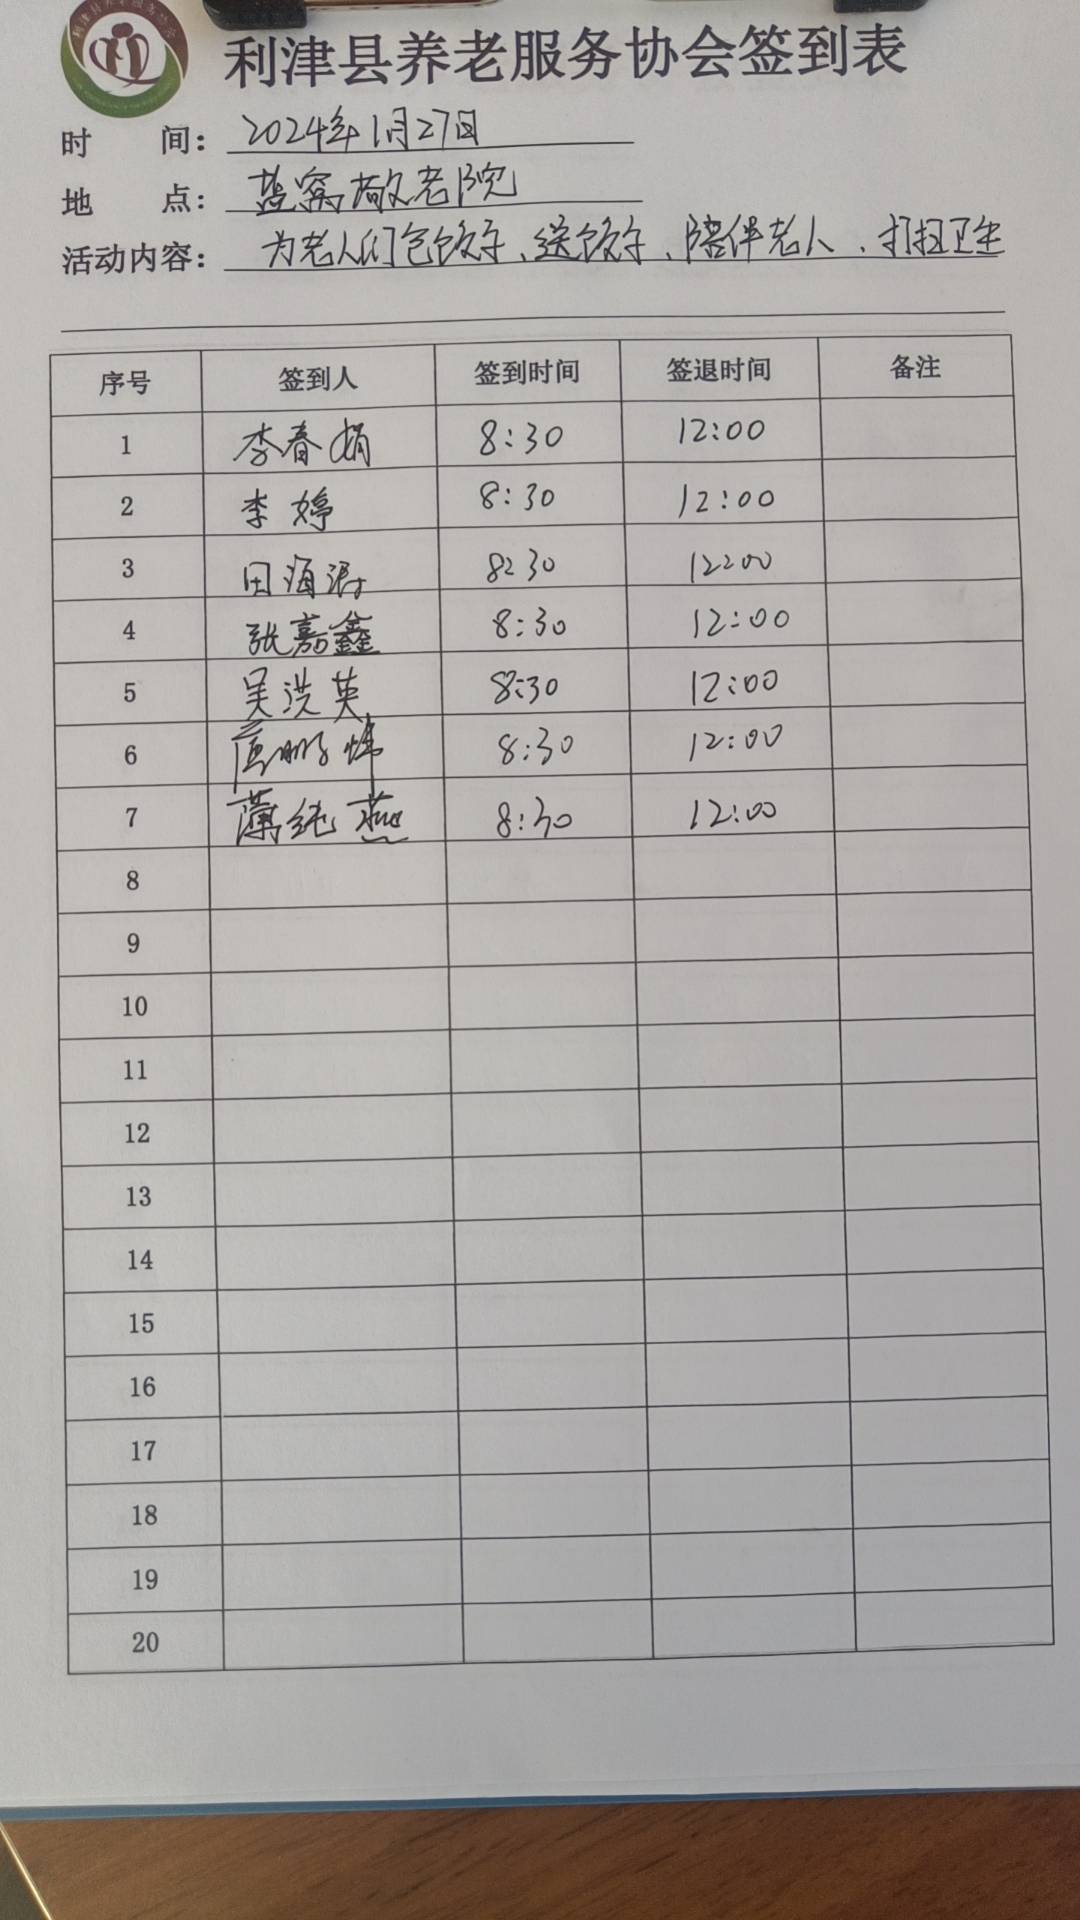 利津县养老服务协会
利津县养老服务协会签到表
时 间: 2024年1月27日
地 点: 盐窝敬老院
活动内容: 为老人们包饺子、送饺子、陪伴老人、打扫卫生
序号 签到人 签到时间 签退时间 备注
1 李春娟 8:30 12:00
2 李婷 8:30 12:00
3 田海涛 8:30 12:00
4 张嘉鑫 8:30 12:00
5 吴洪英 8:30 12:00
6 8:30 12:00
7 薄纯燕 8:30 12:00
8
9
10
11
12
13
14
15
16
17
18
19
20